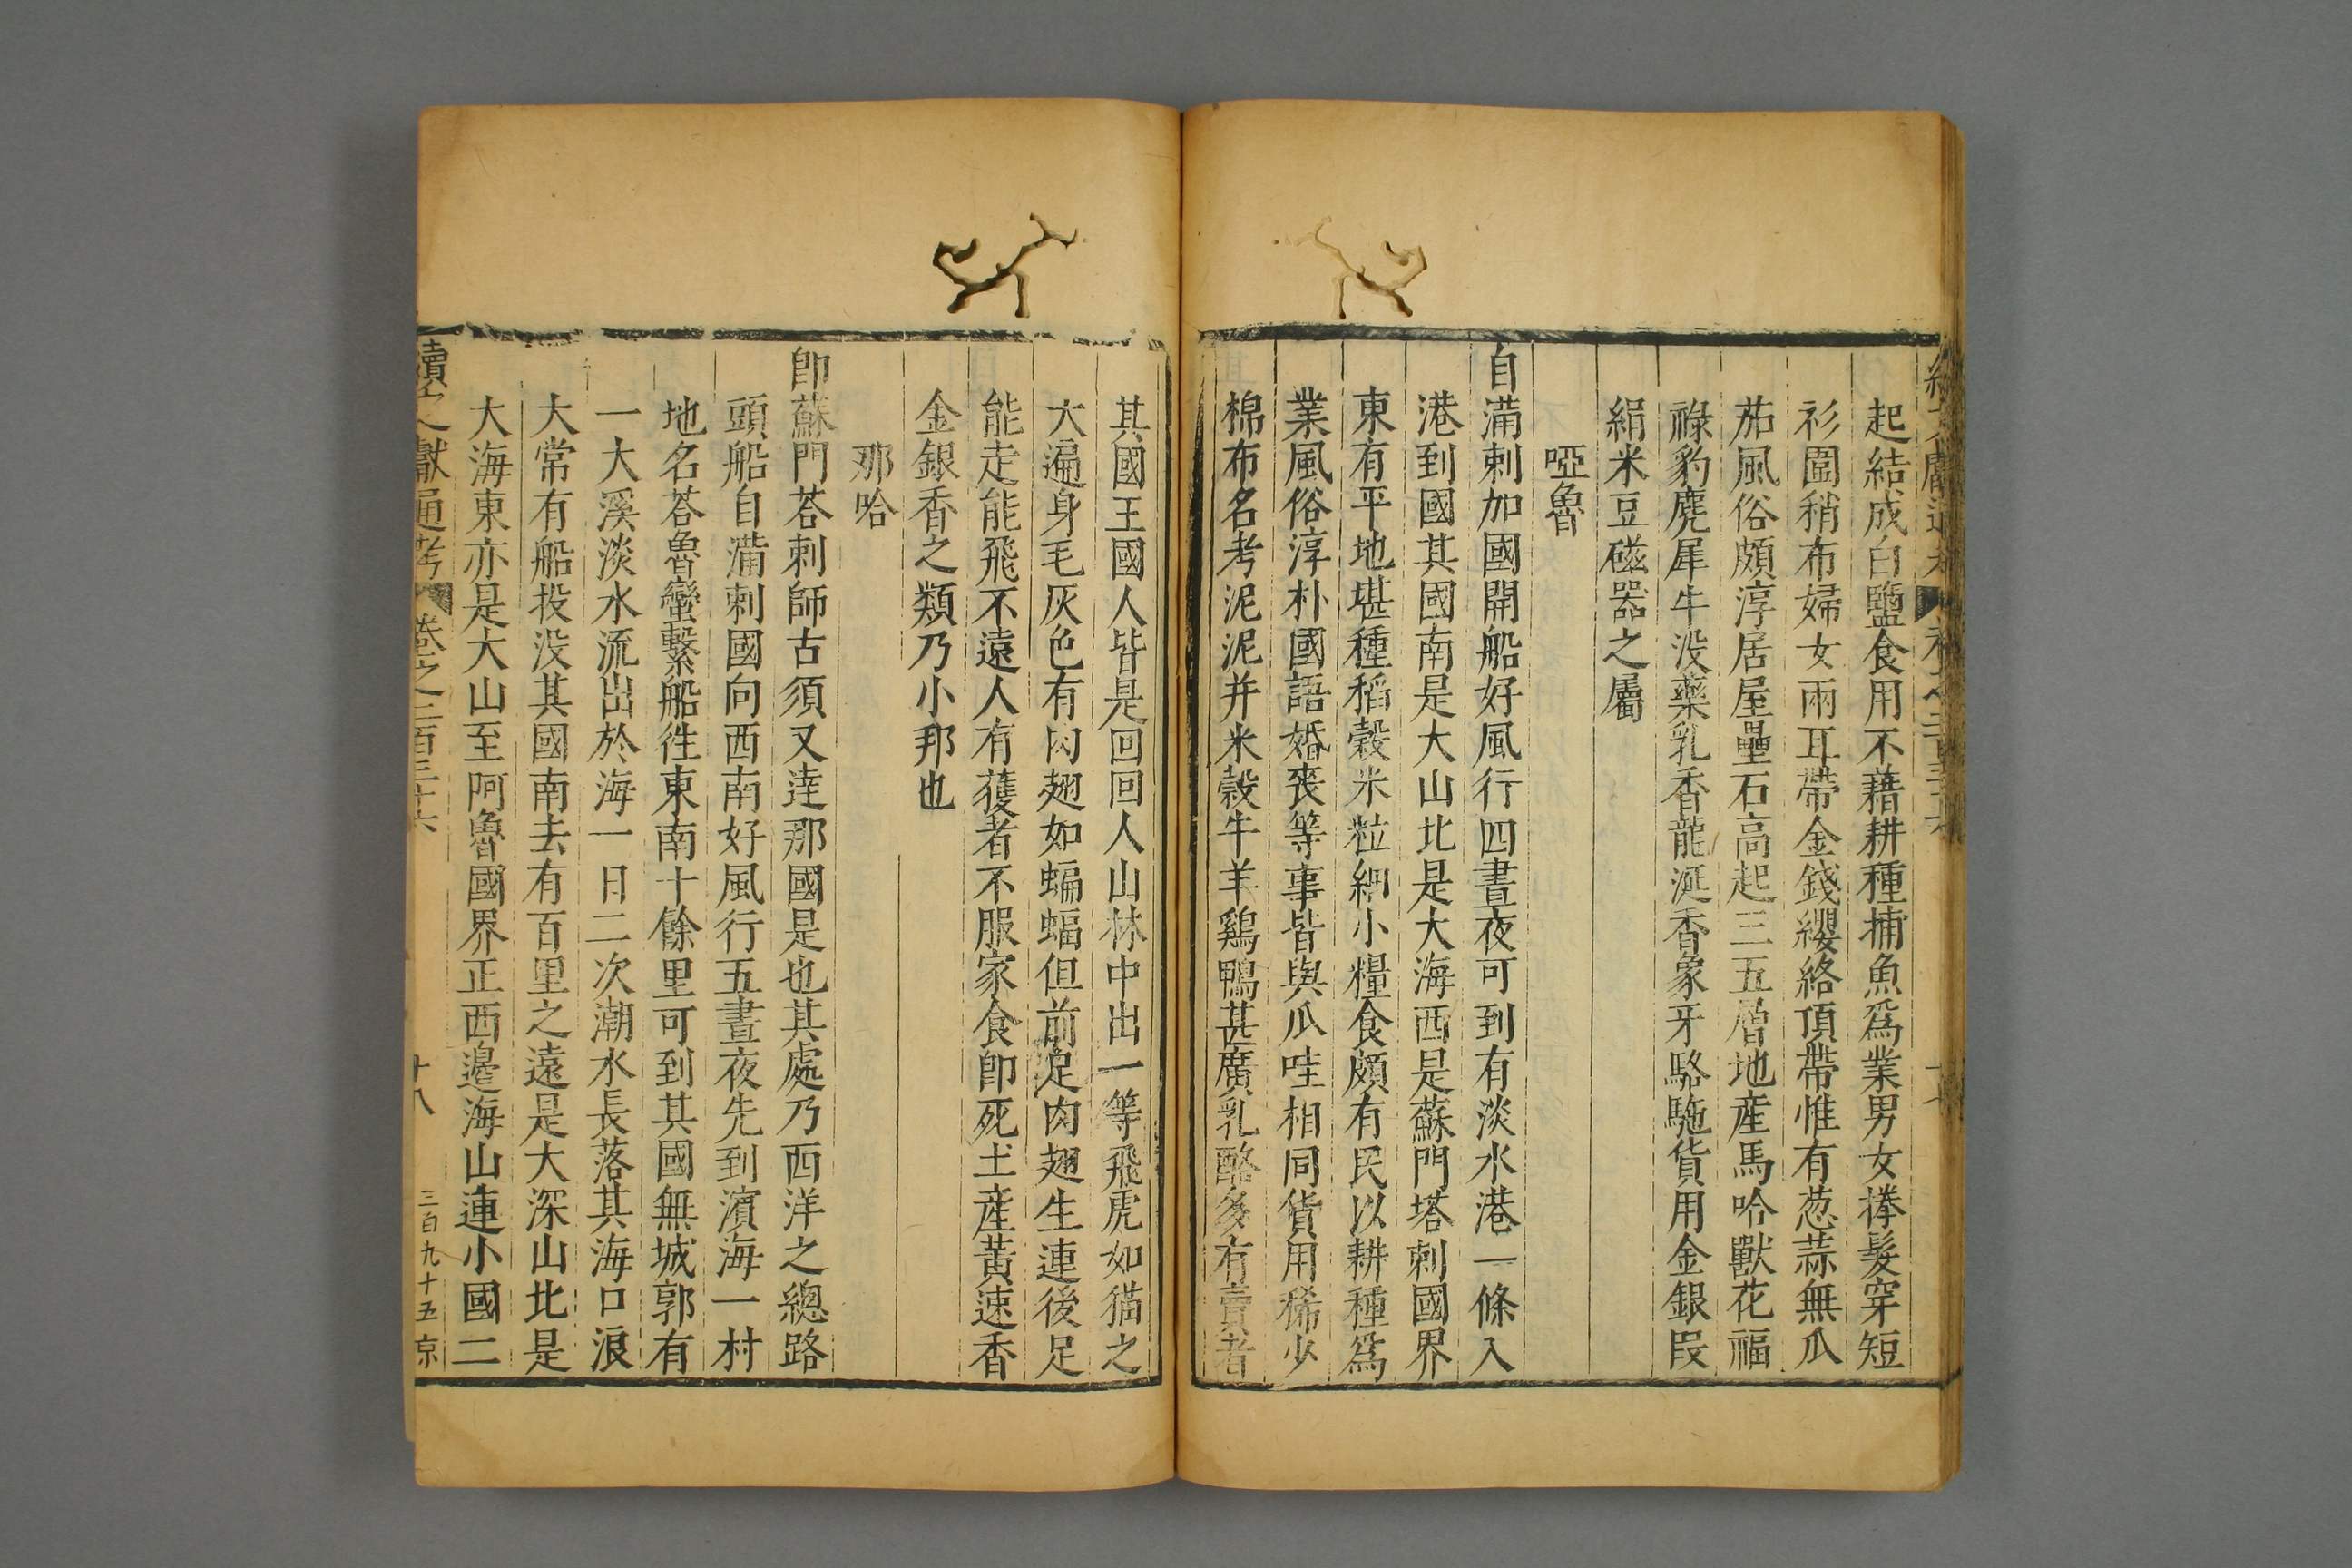 起結成白鹽食用不藉耕種捕魚爲業男女捲髮穿短
衫圍稍布婦女兩耳帶金錢纓絡頂帶惟有葱蒜無瓜
茄風俗頗淳居屋壘石高起三五層地産馬哈獸花福
祿豹麂犀牛没藥乳香龍涎香象牙駱駞貨用金銀段
絹米豆磁器之屬
啞魯
自滿剌加國開船好風行四晝夜可到有淡水港一條入
港到國其國南是大山北是大海西是蘇門塔剌國界
東有平地堪種稻穀米粒細小糧食頗有民以耕種爲
業風俗淳朴國語婚喪等事皆與瓜哇相同貨用稀少
棉布名考泥泥并米穀牛羊鷄鴨甚廣乳酪多有賣者
其國王國人皆是回回人山林中出一等飛虎如猫之
大遍身毛灰色有肉翅如蝙蝠但前足肉翅生連後足
能走能飛不遠人有獲者不服家食即死土産黄速香
金銀香之類乃小邦也
那哈
即蘇門荅剌師古須文達那國是也其處乃西洋之總路
頭船自滿剌國向西南好風行五晝夜先到濵海一村
地名荅魯蠻繫船徃東南十餘里可到其國無城郭有
一大溪淡水流出於海一日二次潮水長落其海口浪
大常有船投没其國南去有百里之遠是大深山北是
大海東亦是大山至阿魯國界正西邉海山連小國二
續文獻通考 卷之二百三十六 十八 三百九十五 京